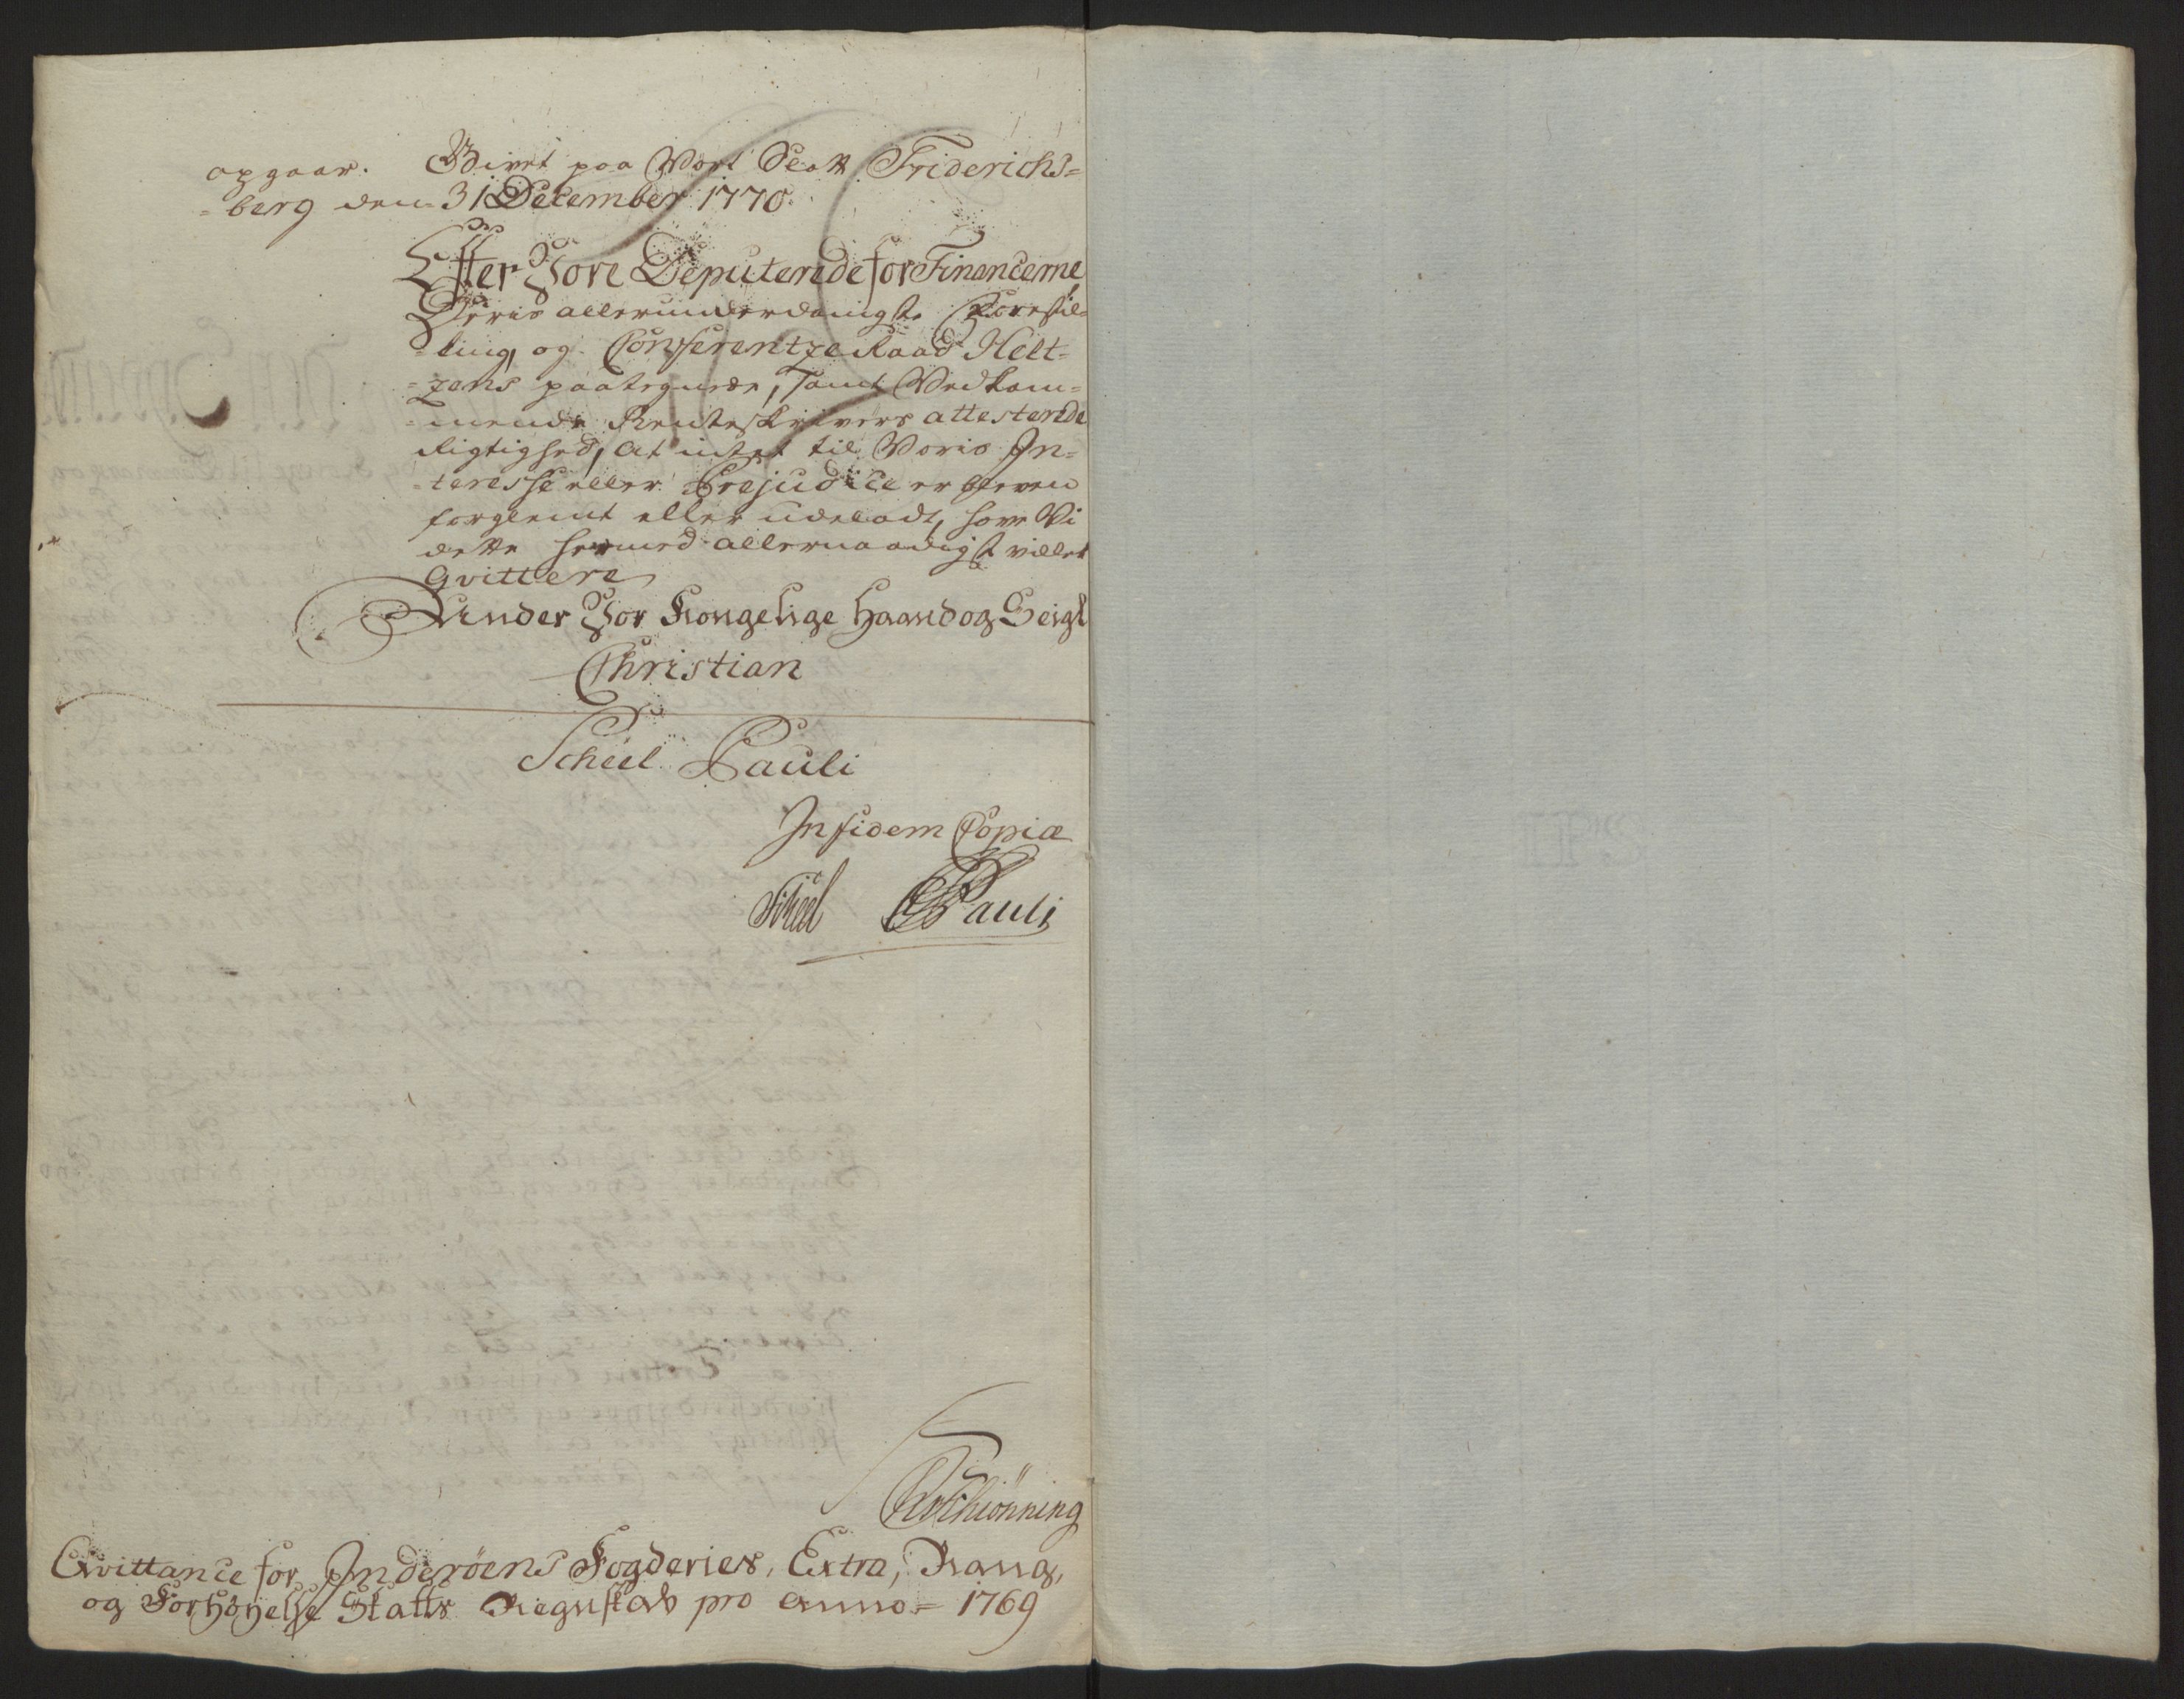 opgaar. Givet paa Vort Slott Friderichs=
=berg den 31 December 1770.
Efter Vore Deputerede for Financerne
Deris allerunderdanigste Forestil=
=ling, og Conferentze Raad Helt=
=zens paategnede, samt Vedkom=
=mende Renteskrivers attesterede
Rigtighed, at intet til Voris In=
=teresse eller Prejudice er bleven
forglemt eller udeladt, have Vi
dette hermed allernaadigst villet
Qvittere
Under Vor Kongelige Haand og Seigl
Christian
Scheel Pauli
In fidem Copiæ
Scheel Pauli
Schiönning
Qvittance for Inderöens Fogderies, Extra, Rang,
og Forhöyelse Skatts Regnskab pro anno = 1769